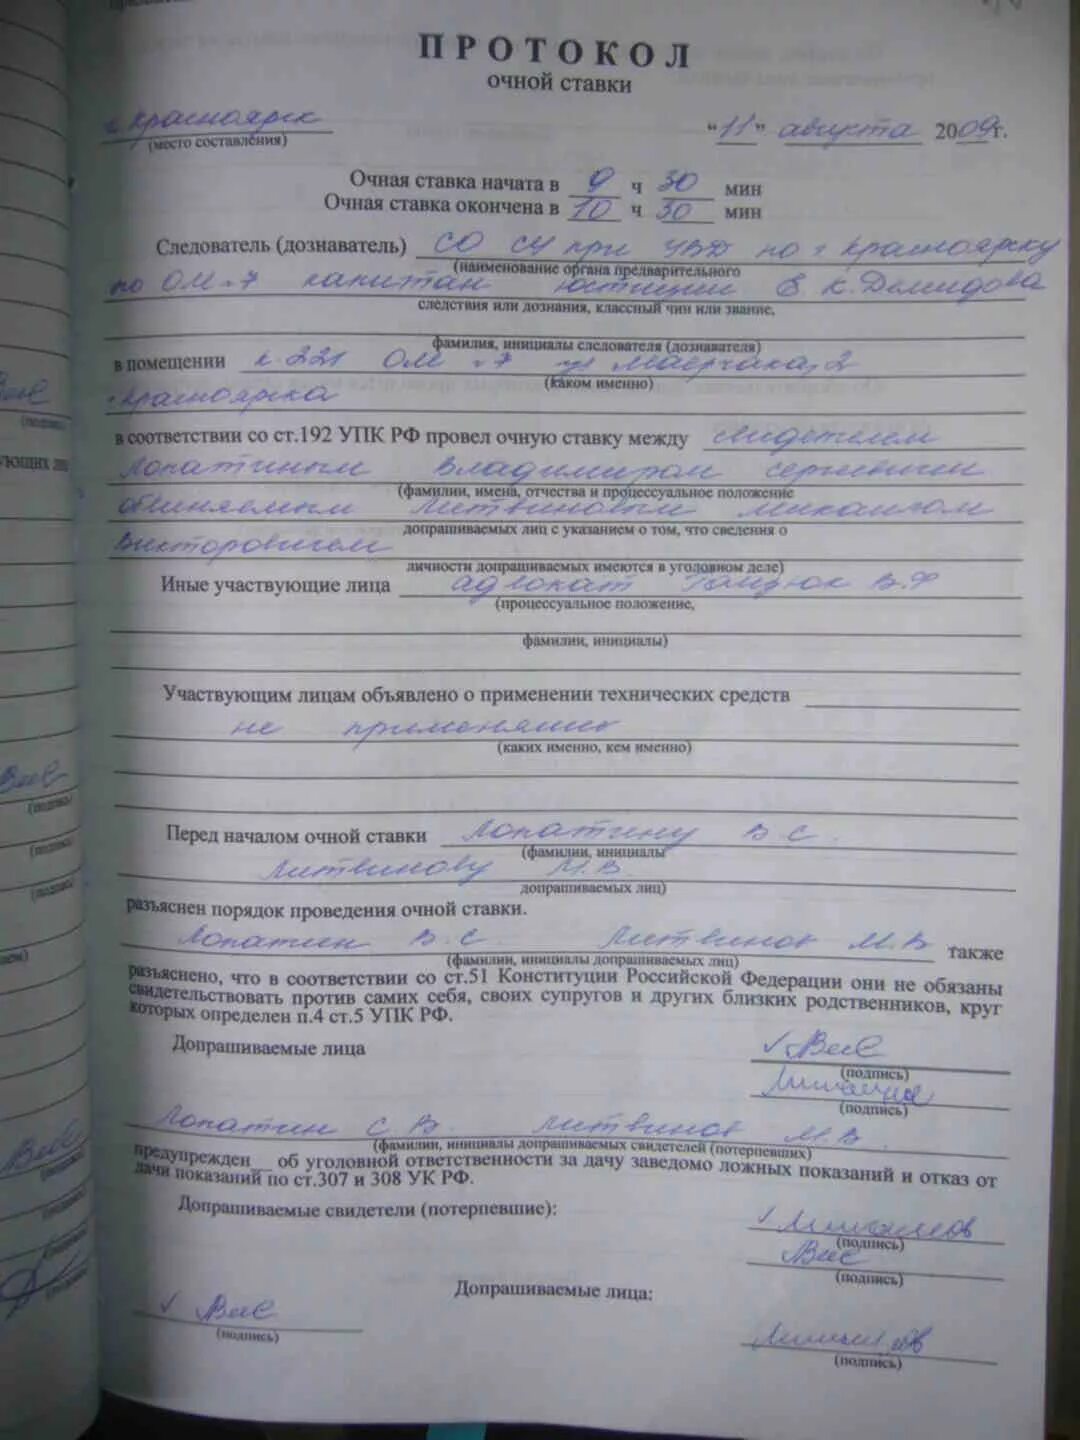 ПРОТОКОЛ
очной ставки
г. Красноярск
(место составления)
"11" августа 2009 г.
Очная ставка начата в 9 ч 30 мин
Очная ставка окончена в 10 ч 30 мин
Следователь (дознаватель) СО СУ при УВД по г Красноярску
(наименование органа предварительного
по ОМ-7 капитан юстиции Е. К. Демидова
следствия или дознания, классный чин или звание,
фамилия, инициалы следователя (дознавателя)
в помещении к. 221 ОМ 7 ул Маерчака, 2
(каком именно)
г Красноярска
в соответствии со ст.192 УПК РФ провел очную ставку между свидетелем
Лопатиным Владимиром
(фамилии, имена, отчества и процессуальное положение
обвиняемым Литвиновым
допрашиваемых лиц с указанием о том, что сведения о
Викторовичем
личности допрашиваемых имеются в уголовном деле)
Иные участвующие лица адвокат В.Ф
(процессуальное положение,
фамилии, инициалы)
Участвующим лицам объявлено о применении технических средств
не применялись
(каких именно, кем именно)
Перед началом очной ставки Лопатину В С.
(фамилии, инициалы
Литвинову М.В.
допрашиваемых лиц)
разъяснен порядок проведения очной ставки.
Лопатин В.С Литвинов М.В также
(фамилии, инициалы допрашиваемых лиц)
разъяснено, что в соответствии со ст.51 Конституции Российской Федерации они не обязаны
свидетельствовать против самих себя, своих супругов и других близких родственников, круг
которых определен п.4 ст.5 УПК РФ.
Допрашиваемые лица
(подпись)
(подпись)
Лопатин С.В. Литвинов М.В.
(фамилии, инициалы допрашиваемых свидетелей (потерпевших)
предупрежден об уголовной ответственности за дачу заведомо ложных показаний и отказ от
дачи показаний по ст.307 и 308 УК РФ.
Допрашиваемые свидетели (потерпевшие):
(подпись)
(подпись)
Допрашиваемые лица:
(подпись)
(подпись)